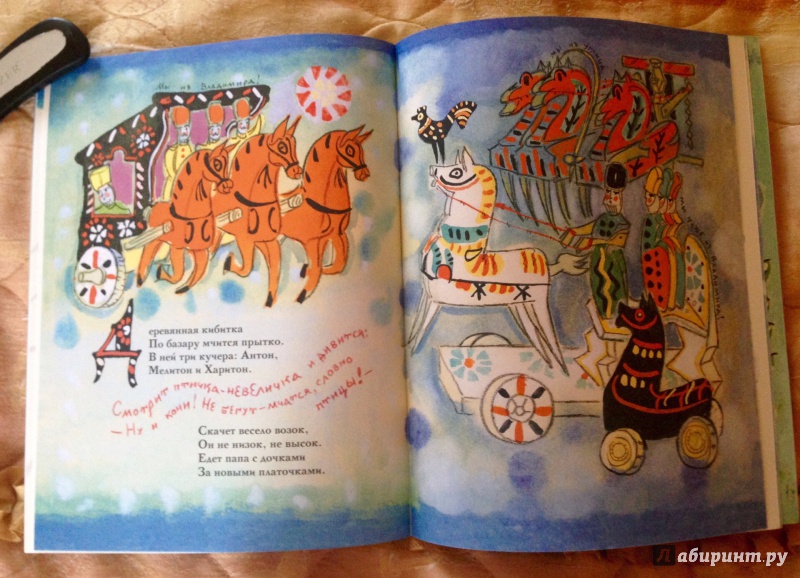 Мы из Владимира!
Деревянная кибитка
По базару мчится прытко.
В ней три кучера: Антон,
Мелитон и Харитон.
Смотрит птичка-невеличка и дивится:
— Ну и кони! Не бегут — мчатся, словно
птицы!
Скачет весело возок,
Он не низок, не высок.
Едет папа с дочками
За новыми платочками.
лабиринт.ру